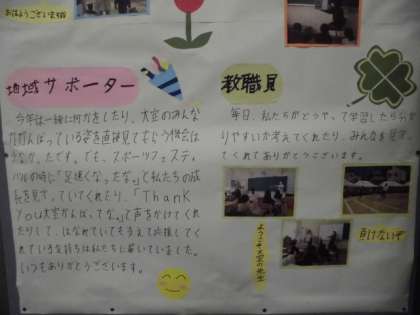 おはようございます
地域サポーター
今年は一緒に何かをしたり、大宮のみんな
ががんばっている姿を直接見てもらう機会は
なかったです。でも、スポーツフェスティ
バルの時に「足速くなったな。」と私たちの成
長を見守っていてくれたり、「Thank
You大宮がんばってな。」と声をかけてくれ
たりして、はなれていても支えて応援してく
れている気持ちは私たちに届いていました。
いつもありがとうございます。
教職員
毎日、私たちがどうやって学習したら分か
りやすいか考えてくれたり、みんなを見守っ
てくれてありがとうございます。
ようこそ大宮の先生
負けないぞ